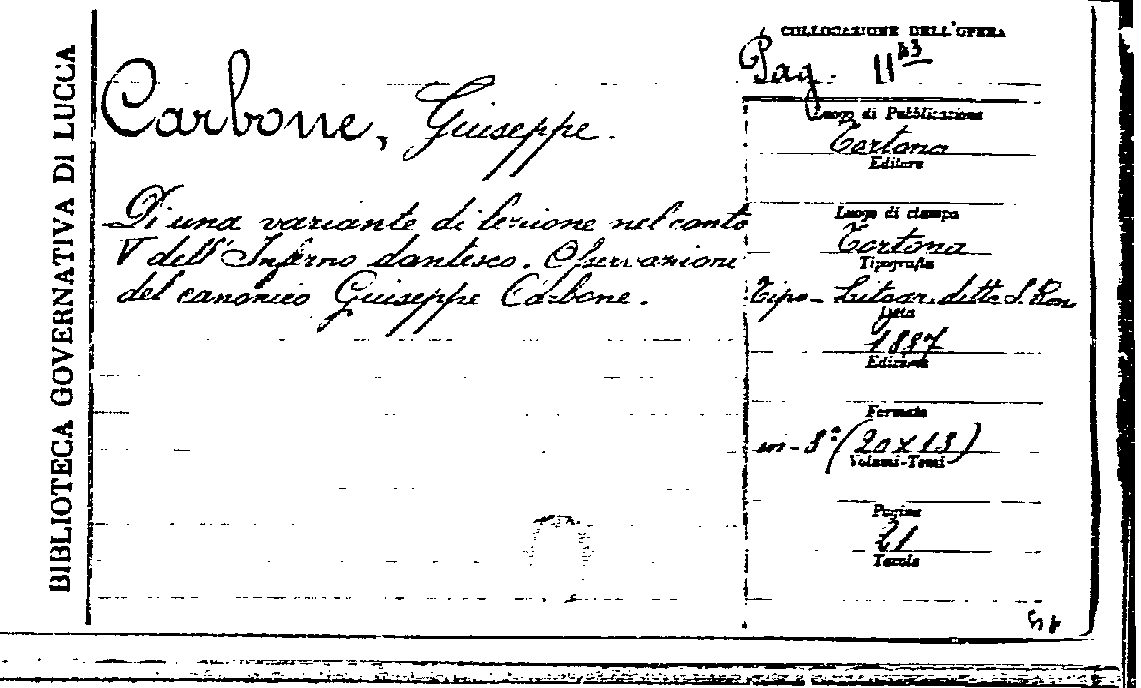 BIBLIOTECA GOVERNATIVA DI LUCCA
Carbone, Giuseppe.
Di una variante di lezione nel canto
V dell'Inferno dantesco. Osservazioni
del canonico Giuseppe Carbone.
COLLOCAZIONE DELL'OPERA
Pag. 11 43
Luogo di Pubblicazione
Tortona
Editore
Luogo di stampa
Tortona
Tipografia
Tipo-Litogr. detta S. Ron
Data
1887
Edizione
Formato
in-8° (20 x 13)
Volumi-Tomi
Pagine
21
Tavole